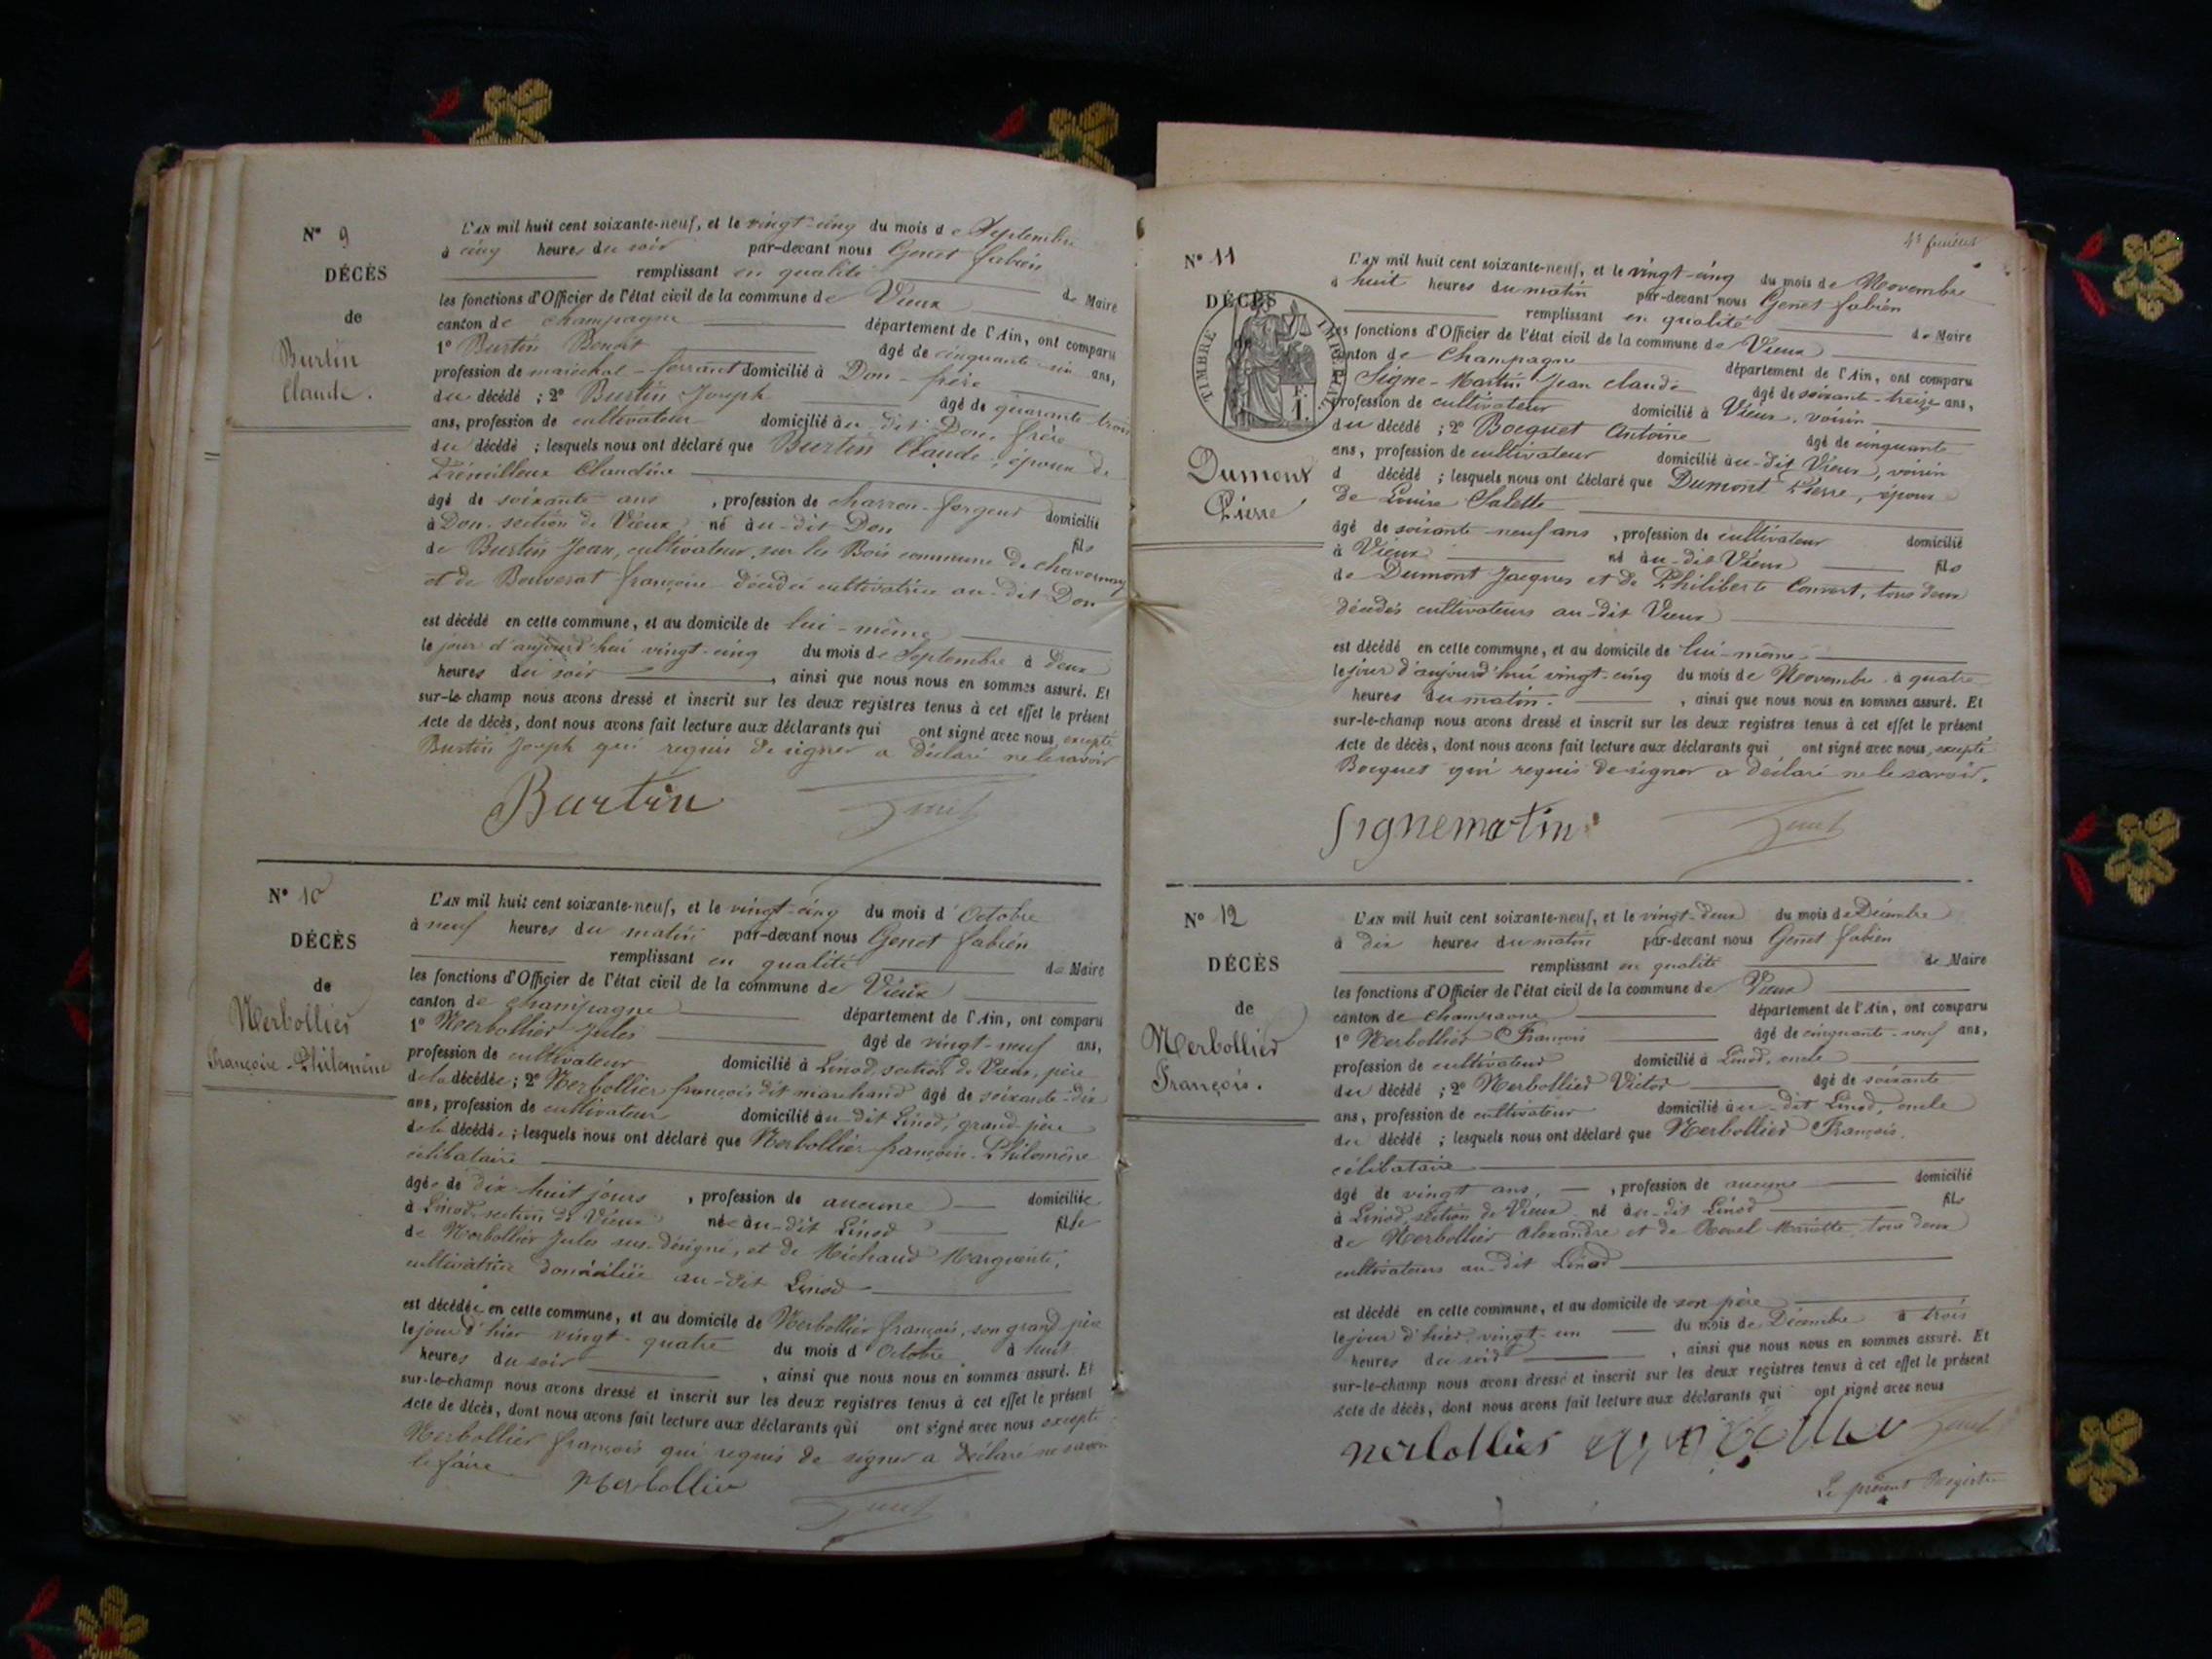 N° 9
DÉCÈS
de
Burtin
Claude.
L'AN mil huit cent soixante-neuf, et le vingt-cinq du mois de Septembre
à cinq heures du soir par-devant nous Genet fabien
remplissant en qualité de Maire
les fonctions d'Officier de l'état civil de la commune de Vieux
canton de champagne département de l'Ain, ont comparu
1° Burtin Benoit âgé de cinquante-un ans,
profession de maréchal-ferrant domicilié à Don-frère
du décédé ; 2° Burtin Joseph âgé de quarante-trois
ans, profession de cultivateur domicilié à u-dit Don, frère
du décédé ; lesquels nous ont déclaré que Burtin Claude, époux de
Claudine
âgé de soixante ans , profession de charron-forgeur domicilié
à Don, section de Vieux né à u-dit Don fils
de Burtin Jean, cultivateur, sur les Bois commune de chavornay
et de Bouverat françoise décédée cultivatrice au-dit Don
est décédé en cette commune, et au domicile de lui-même
le jour d'aujourd'hui vingt-cinq du mois de Septembre à deux
heures du soir , ainsi que nous nous en sommes assuré. Et
sur-le-champ nous avons dressé et inscrit sur les deux registres tenus à cet effet le présent
Acte de décès, dont nous avons fait lecture aux déclarants qui ont signé avec nous, excepté
Burtin Joseph qui requis de signer a déclaré ne le savoir
Burtin Genet
N° 10
DÉCÈS
de
Nerbollier
Françoise-Philomène
L'AN mil huit cent soixante-neuf, et le vingt-cinq du mois d'Octobre
à neuf heures du matin par-devant nous Genet fabien
remplissant en qualité de Maire
les fonctions d'Officier de l'état civil de la commune de Vieux
canton de champagne département de l'Ain, ont comparu
1° Nerbollier Jules âgé de vingt-neuf ans,
profession de cultivateur domicilié à Linod, section de Vieux, père
de la décédée ; 2° Nerbollier françois dit marchand âgé de soixante-dix
ans, profession de cultivateur domicilié à u-dit Linod, grand-père
de la décédée ; lesquels nous ont déclaré que Nerbollier françoise-Philomène
célibataire
âgée de dix-huit jours , profession de aucune domiciliée
à Linod, section de Vieux née à u-dit Linod fille
de Nerbollier Jules sus-désigné, et de Michaud Marguerite,
cultivatrice domiciliée au-dit Linod
est décédée en cette commune, et au domicile de Nerbollier françois, son grand-père
le jour d'hier vingt-quatre du mois d'Octobre à huit
heures du soir , ainsi que nous nous en sommes assuré. Et
sur-le-champ nous avons dressé et inscrit sur les deux registres tenus à cet effet le présent
Acte de décès, dont nous avons fait lecture aux déclarants qui ont signé avec nous excepté
Nerbollier françois qui requis de signer a déclaré ne savoir
le faire
Nerbollier
Genet
N° 11
DÉCÈS
de
TIMBRE IMPÉRIAL
F.
1.
Dumont
Pierre
feuillet
L'AN mil huit cent soixante-neuf, et le vingt-cinq du mois de Novembre
à huit heures du matin par-devant nous Genet fabien
remplissant en qualité de Maire
les fonctions d'Officier de l'état civil de la commune de Vieux
canton de Champagne département de l'Ain, ont comparu
Signe-Martin Jean claude âgé de soixante-treize ans,
profession de cultivateur domicilié à Vieux, voisin
du décédé ; 2° Bocquet Antoine âgé de cinquante
ans, profession de cultivateur domicilié à u-dit Vieux, voisin
d décédé ; lesquels nous ont déclaré que Dumont Pierre, époux
de Louise Salette
âgé de soixante-neuf ans , profession de cultivateur domicilié
à Vieux né à u-dit Vieux fils
de Dumont Jacques et de Philiberte Convert, tous deux
décédés cultivateurs au-dit Vieux
est décédé en cette commune, et au domicile de lui-même
le jour d'aujourd'hui vingt-cinq du mois de Novembre à quatre
heures du matin. , ainsi que nous nous en sommes assuré. Et
sur-le-champ nous avons dressé et inscrit sur les deux registres tenus à cet effet le présent
Acte de décès, dont nous avons fait lecture aux déclarants qui ont signé avec nous, excepté
Bocquet qui requis de signer a déclaré ne le savoir.
Signemartin Genet
N° 12
DÉCÈS
de
Nerbollier
François.
L'AN mil huit cent soixante-neuf, et le vingt-deux du mois de Décembre
à dix heures du matin par-devant nous Genet fabien
remplissant en qualité de Maire
les fonctions d'Officier de l'état civil de la commune de Vieux
canton de champagne département de l'Ain, ont comparu
1° Nerbollier François âgé de cinquante-neuf ans,
profession de cultivateur domicilié à Linod, oncle
du décédé ; 2° Nerbollier Victor âgé de soixante
ans, profession de cultivateur domicilié à u-dit Linod, oncle
du décédé ; lesquels nous ont déclaré que Nerbollier François,
célibataire
âgé de vingt ans, , profession de aucune domicilié
à Linod, section de Vieux né à u-dit Linod fils
de Nerbollier Alexandre et de Mariette, tous deux
cultivateurs au-dit Linod
est décédé en cette commune, et au domicile de son père
le jour d'hier vingt-un du mois de Décembre à trois
heures du soir , ainsi que nous nous en sommes assuré. Et
sur-le-champ nous avons dressé et inscrit sur les deux registres tenus à cet effet le présent
Acte de décès, dont nous avons fait lecture aux déclarants qui ont signé avec nous
nerbollier Genet
Le présent Registre